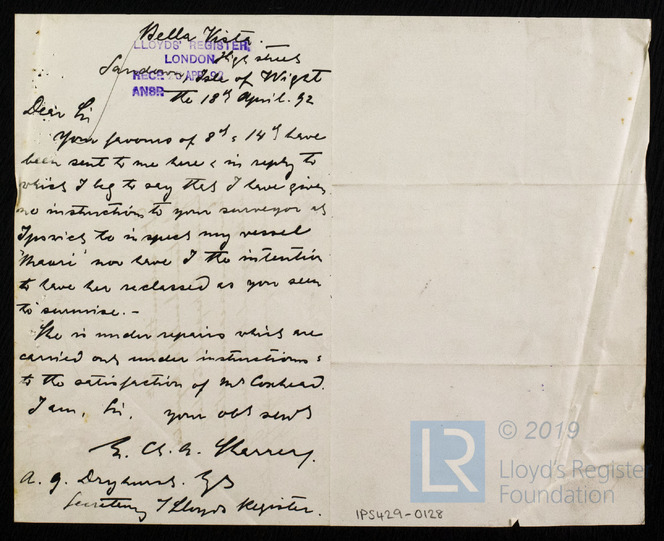 Bella Vista.
LLOYDS' REGISTER,
LONDON
High Street
Sandown, Isle of Wight
RECD APR 92
ANSD
the 18th April. 92
Dear Sir
Your favours of 8th & 14th have
been sent to me here & in reply to
which I beg to say that I have given
no instructions to your surveyor at
Ipswich to inspect my vessel
'Maori' nor have I the intention
to have her reclassed as you seem
to surmise. -
She is under repairs which are
carried out under instructions &
to the satisfaction of Mr Coxhead.
I am, Sir, your obt servt
A. G. Dryhurst. Esq
Secretary / Lloyds Register.
IPS429-0128
LR
© 2019
Lloyd's Register
Foundation